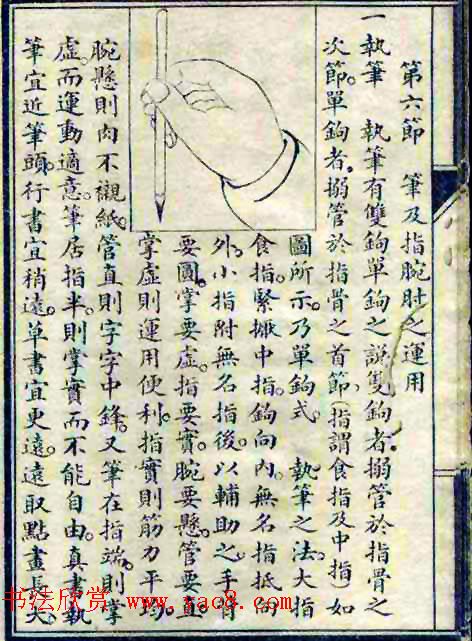 第六節　筆及指腕肘之運用
一執筆　執筆有雙鉤單鉤之說雙鉤者。搦管於指骨之
次節單鉤者。搦管於指骨之首節、(指謂食指及中指)如
圖所示。乃單鉤式　執筆之法大指
食指。緊中指鉤向內。無名指抵向
外。小指附無名指後。以輔助之。手背
要圓。掌要虛。指要實。腕要懸。管要直。
掌虛則運用便利。指實則筋力平均
腕懸則肉不襯紙。管直則字字中鋒。又筆在指端。則掌
虛。而運動適意。筆居指半。則掌實而不能自由。真書執
筆宜近筆頭。行書宜稍遠。草書宜更遠。遠取點畫長大
书法欣赏 www.yac8.com